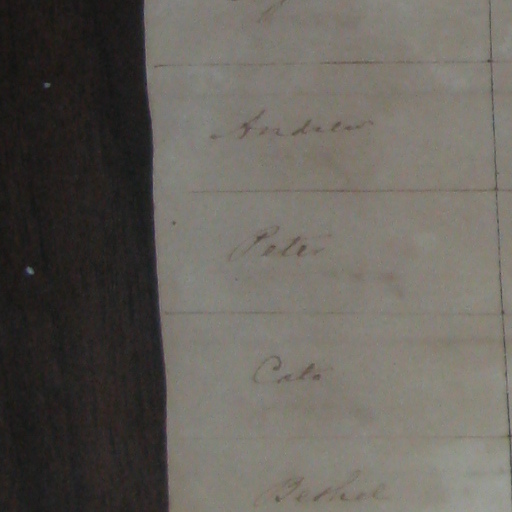 Andrew
Peter
Cato
Bethel